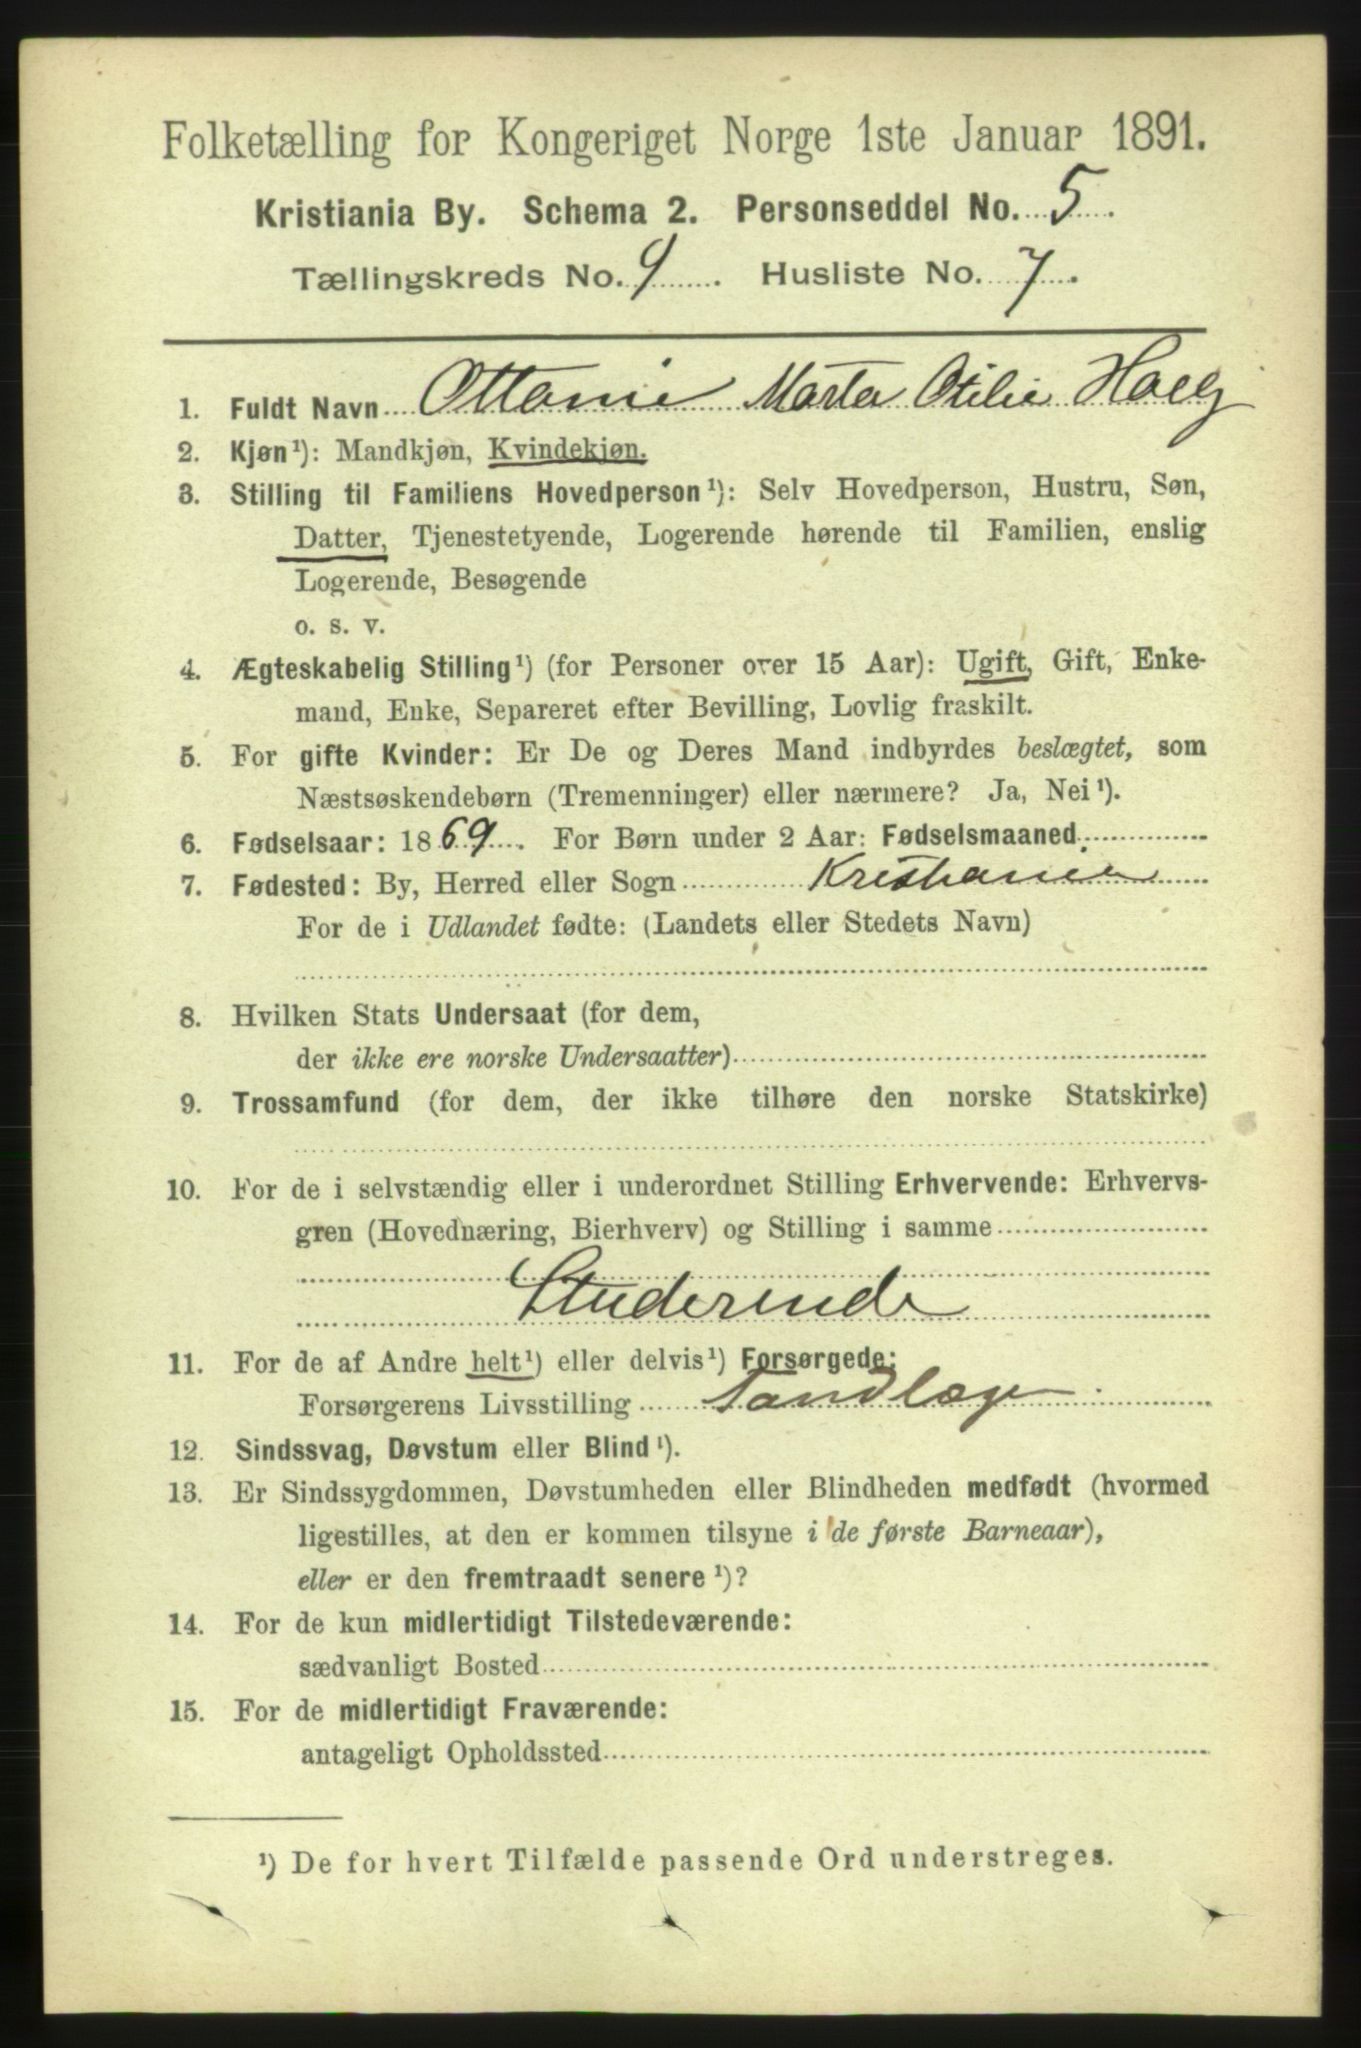 Folketælling for Kongeriget Norge 1ste Januar 1891.
Kristiania By. Schema 2. Personseddel No. 5.
Tællingskreds No. 9. Husliste No. 7.
1. Fuldt Navn Ottonie Marta Otilie
2. Kjøn¹): Mandkjøn, Kvindekjøn.
3. Stilling til Familiens Hovedperson¹): Selv Hovedperson, Hustru, Søn,
Datter, Tjenestetyende, Logerende hørende til Familien, enslig
Logerende, Besøgende
o. s. v.
4. Ægteskabelig Stilling¹) (for Personer over 15 Aar): Ugift, Gift, Enke-
mand, Enke, Separeret efter Bevilling, Lovlig fraskilt.
5. For gifte Kvinder: Er De og Deres Mand indbyrdes beslægtet, som
Næstsøskendebørn (Tremenninger) eller nærmere? Ja, Nei¹).
6. Fødselsaar: 1869. For Børn under 2 Aar: Fødselsmaaned
7. Fødested: By, Herred eller Sogn Kristiania
For de i Udlandet fødte: (Landets eller Stedets Navn)
8. Hvilken Stats Undersaat (for dem,
der ikke ere norske Undersaatter)
9. Trossamfund (for dem, der ikke tilhøre den norske Statskirke)
10. For de i selvstændig eller i underordnet Stilling Erhvervende: Erhvervs-
gren (Hovednæring, Bierhverv) og Stilling i samme
Studerende
11. For de af Andre helt¹) eller delvis¹) Forsørgede:
Forsørgerens Livsstilling Tandlæge
12. Sindssvag, Døvstum eller Blind¹).
13. Er Sindssygdommen, Døvstumheden eller Blindheden medfødt (hvormed
ligestilles, at den er kommen tilsyne i de første Barneaar),
eller er den fremtraadt senere¹)?
14. For de kun midlertidigt Tilstedeværende:
sædvanligt Bosted
15. For de midlertidigt Fraværende:
antageligt Opholdssted
¹) De for hvert Tilfælde passende Ord understreges.